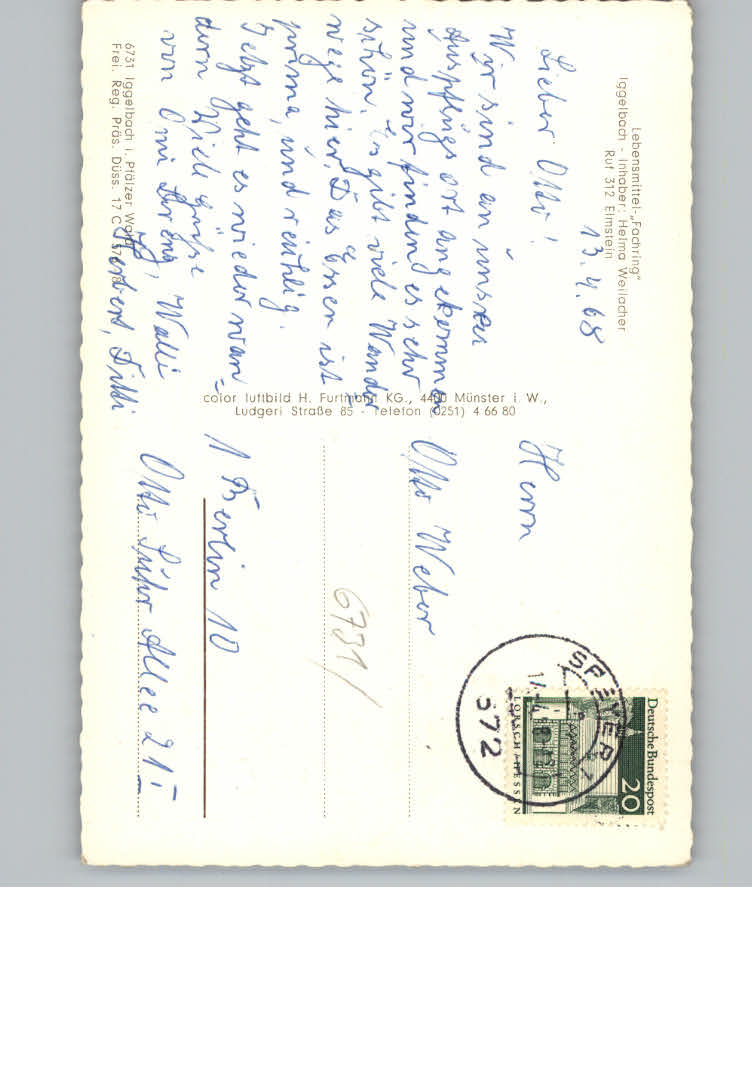 Lebensmittel-„Fachring"
Iggelbach - Inhaber: Helma Weilacher
Ruf 312 Elmstein
13.4.68
Lieber Otto!
Wir sind an unsren
Ausspflugsort angekommen
und wir finden es sehr
schön. Es gibt viele Wander
wege hier. Das Essen ist
prima, und reichlig.
Jetzt geht es wieder wan-
dern Viele grüße
von Omi Walli
Herbert,
6731 Iggelbach i. Pfälzer Wald
Frei. Reg. Präs. Düss. 17 C
color luftbild H. Furtmann KG., 4400 Münster i. W.,
Ludgeri Straße 85 - Telefon (0251) 4 66 80
Herrn
Otto Weber
6731/
1 Berlin 10
Otto Suhr Allee 21 I
Deutsche Bundespost
20
LORSCH/HESSEN
SPEYER 1
672